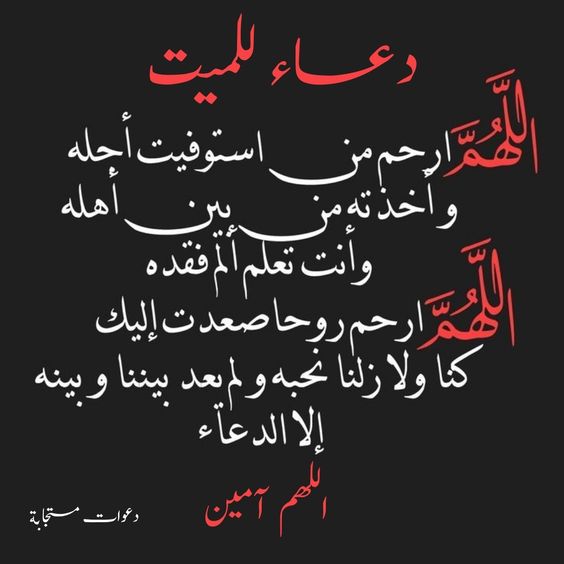 دعاء للميت
اللَّهُمَّ ارحم من استوفيت أحله
وأخذته من بين أهله
وأنت تعلم ألم فقده
اللَّهُمَّ ارحم روحا صعدت إليك
كنا ولا زلنا نحبه ولم يعد بيننا وبينه
إلا الدعاء
اللهم آمين
دعوات مستجابة